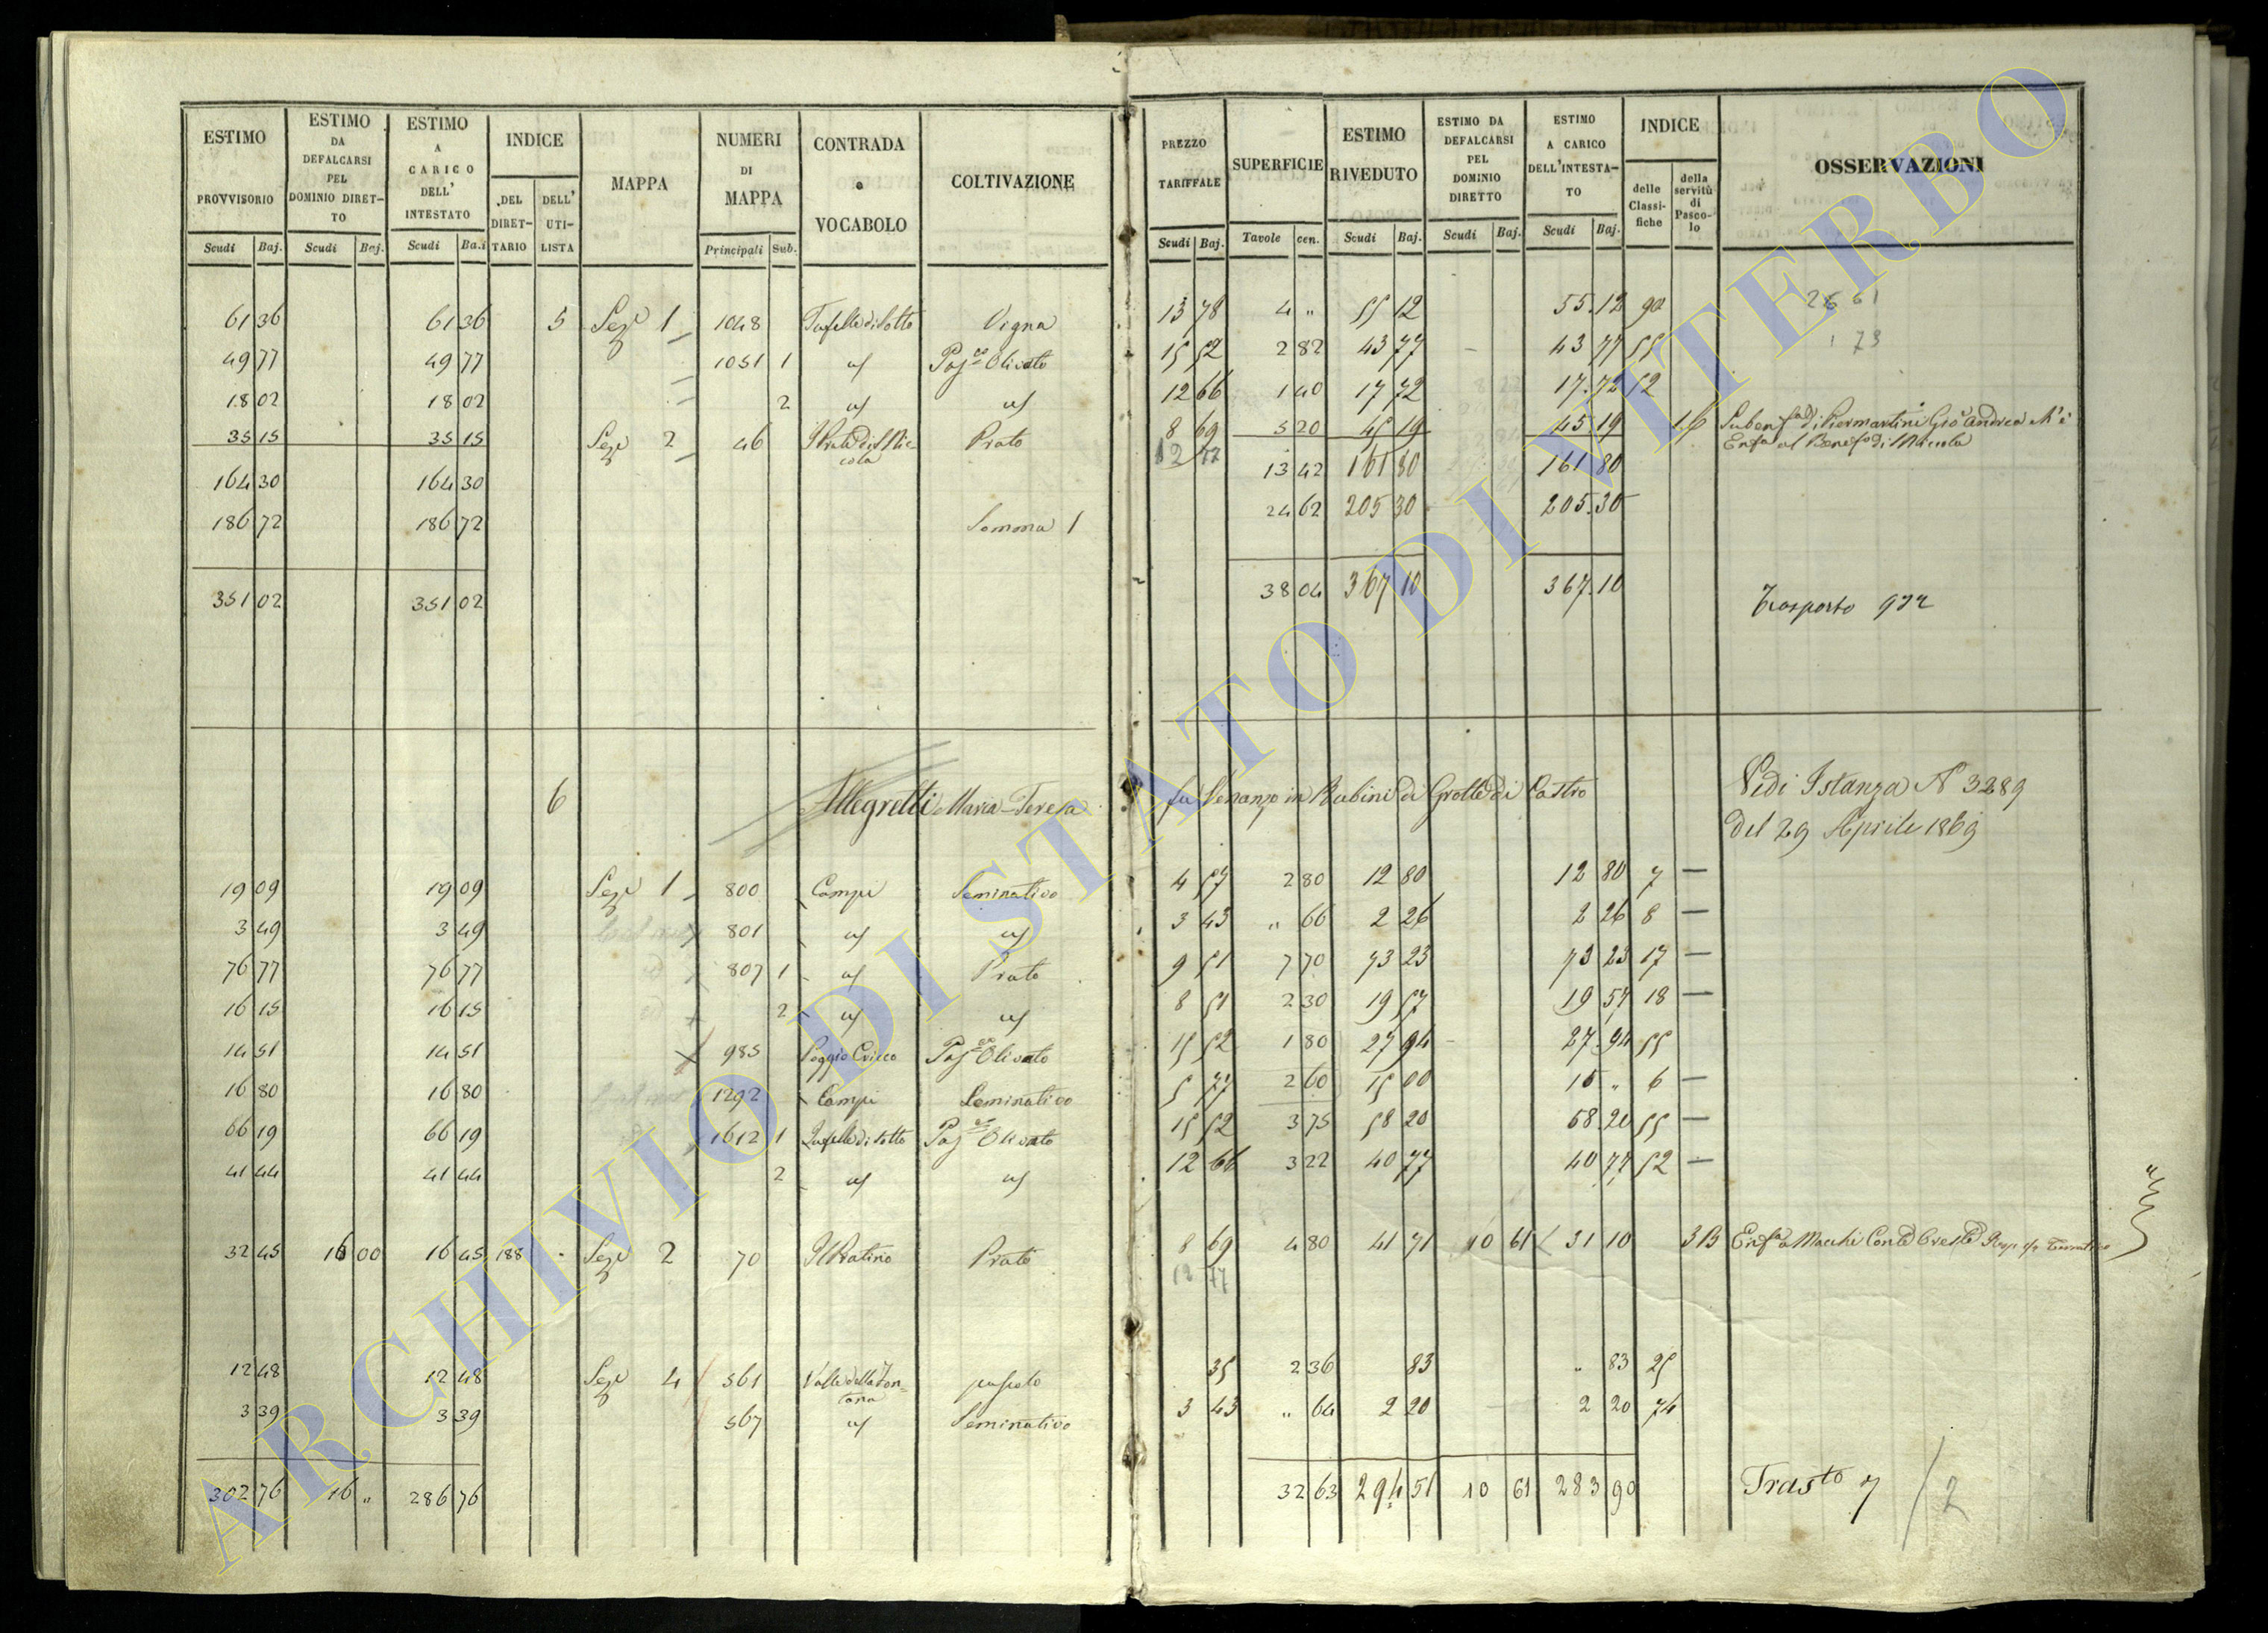 ESTIMO PROVVISORIO Scudi Baj. | ESTIMO DA DEFALCARSI PEL DOMINIO DIRETTO Scudi Baj. | ESTIMO A CARICO DELL' INTESTATO Scudi Baj. | INDICE DEL DIRETTARIO DELL' UTILISTA | MAPPA | NUMERI DI MAPPA Principali Sub. | CONTRADA o VOCABOLO | COLTIVAZIONE
61 36 61 36 5 Sez.e 1 1048 Tufelle di Sotto Vigna
49 77 49 77 1051 1 id Pas.co Olivato
18 02 18 02 2 id id
35 15 35 15 Sez.e 2 46 Prato
164 30 164 30
186 72 186 72 Somma 1
351 02 351 02
6 Allegretti Maria Teresa
19 09 19 09 Sez.e 1 800 Campi Seminativo
3 49 3 49 801 id id
76 77 76 77 807 1 id Prato
16 15 16 15 2 id id
14 51 14 51 985 Poggio Pas.co Olivato
16 80 16 80 1292 Campi Seminativo
66 19 66 19 1612 1 Tufelle di Sotto Pas.co Olivato
41 44 41 44 2 id id
32 45 16 00 16 45 188 Sez.e 2 70 Il Pratino Prato
12 48 12 48 Sez.e 4 561 Valle della Fontana pascolo
3 39 3 39 567 id Seminativo
302 76 16 „ 286 76
PREZZO TARIFFALE Scudi Baj. | SUPERFICIE Tavole cen. | ESTIMO RIVEDUTO Scudi Baj. | ESTIMO DA DEFALCARSI PEL DOMINIO DIRETTO Scudi Baj. | ESTIMO A CARICO DELL'INTESTATO Scudi Baj. | INDICE delle Classifiche della servitù di Pascolo | OSSERVAZIONI
13 78 4 „ 55 12 55.12 90 26 61
15 52 2 82 43 77 43 77 55 1 73
12 66 1 40 17 72 17.72 52
8 69 5 20 45 19 45.19 16 di Piermartini Gio Andrea
12 77 Enf.a al Benef.o di
13 42 161 80 161 80
24 62 205 30 205.30
38 04 367 10 367.10
Trasporto 972
fu Venanzo in Rubini di Grotte di Castro Vedi Istanza N 3289
del 29 Aprile 1869
4 57 2 80 12 80 12 80 7 —
3 43 „ 66 2 26 2 26 8 —
9 51 7 70 73 23 73 23 17 —
8 51 2 30 19 57 19 57 18 —
15 52 1 80 27 94 27.94 55
5 77 2 60 15 00 15 „ 6 —
15 52 3 75 58 20 58.20 55 —
12 66 3 22 40 77 40 77 52 —
8 69 4 80 41 71 10 61 31 10 Enf.a a Macchi Conte Oreste
12 77
35 2 36 83 „ 83 25
3 43 „ 64 2 20 2 20 74
32 63 294 51 10 61 283 90 Trasto 7 / 2
ARCHIVIO DI STATO DI VITERBO